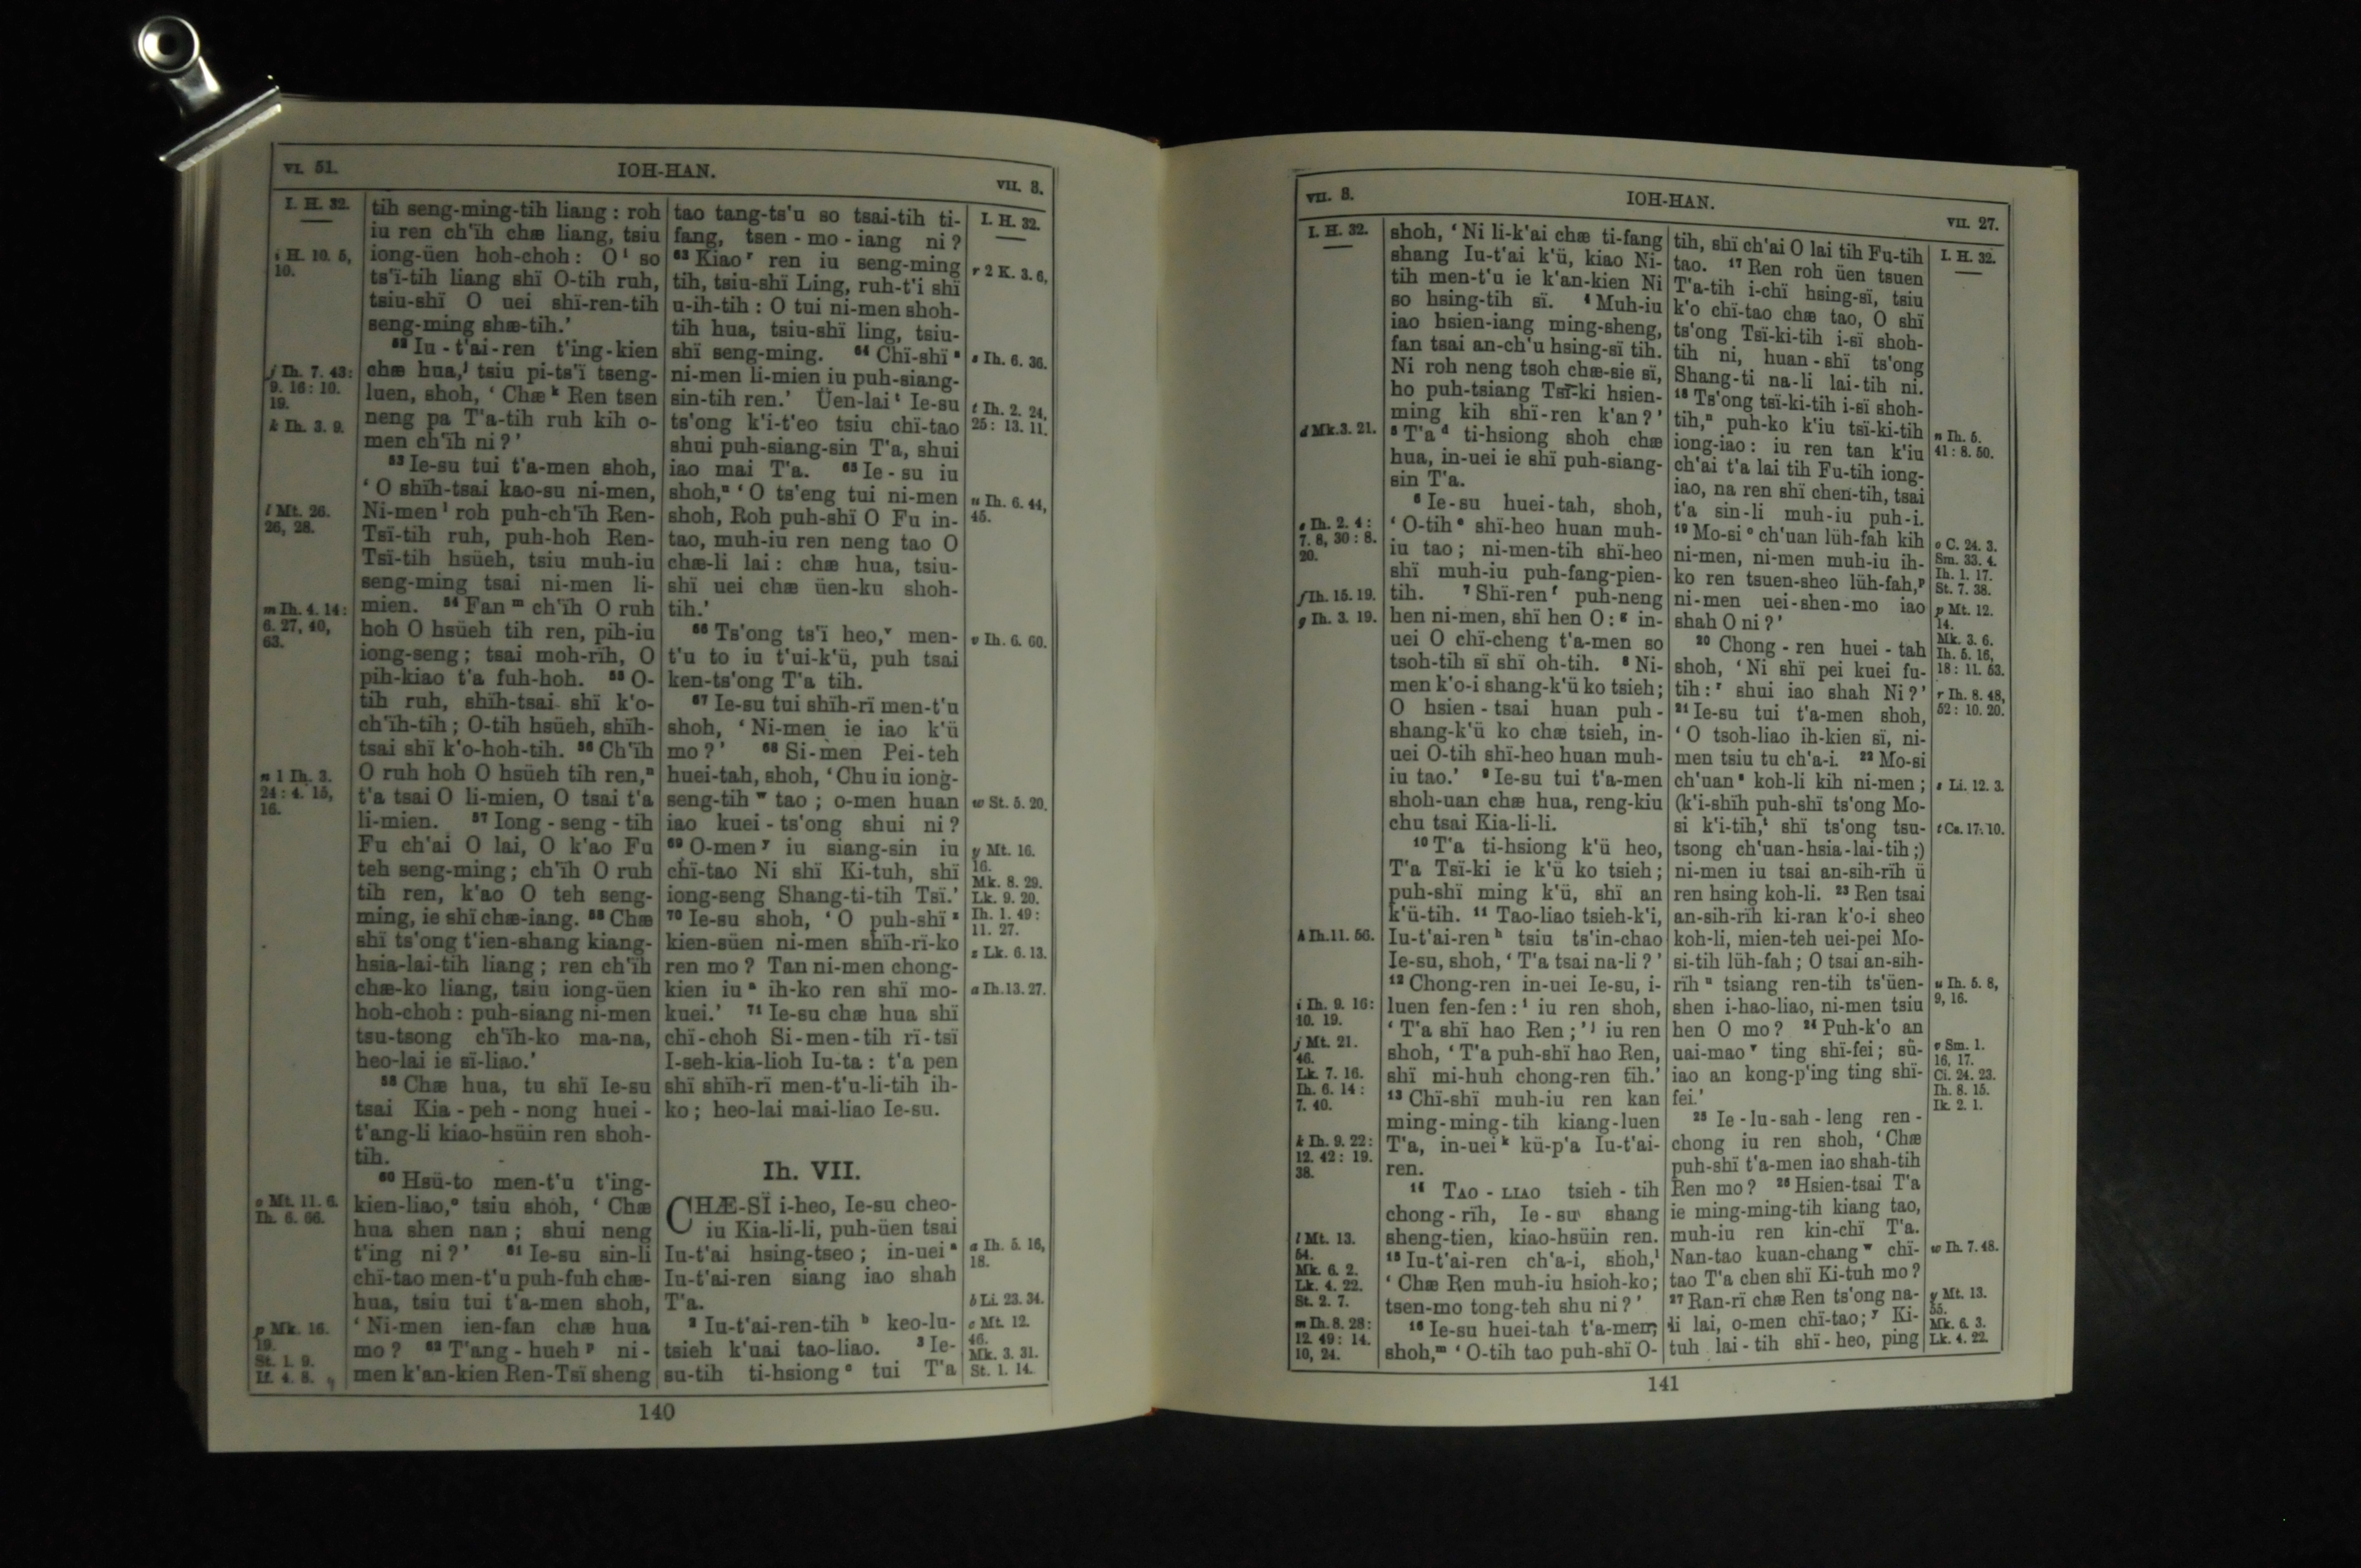 VI. 51.
IOH-HAN.
VII. 3.
I. H. 32.
i H. 10. 5,
10.
j Ih. 7. 43:
9. 16: 10.
19.
k Ih. 3. 9.
l Mt. 26.
26, 28.
m Ih. 4. 14:
6. 27, 40,
63.
n 1 Ih. 3.
24: 4. 15,
16.
o Mt. 11. 6.
Ih. 6. 66.
p Mk. 16.
19.
St. 1. 9.
If. 4. 8.
tih seng-ming-tih liang: roh
iu ren ch'ïh chæ liang, tsiu
iong-üen hoh-choh: O i so
ts'ï-tih liang shï O-tih ruh,
tsiu-shï O uei shï-ren-tih
seng-ming shæ-tih.'
52 Iu-t'ai-ren t'ing-kien
chæ hua, j tsiu pi-ts'ï tseng-
luen, shoh, 'Chæ k Ren tsen
neng pa T'a-tih ruh kih o-
men ch'ïh ni?'
53 Ie-su tui t'a-men shoh,
'O shïh-tsai kao-su ni-men,
Ni-men l roh puh-ch'ïh Ren-
Tsï-tih ruh, puh-hoh Ren-
Tsï-tih hsüeh, tsiu muh-iu
seng-ming tsai ni-men li-
mien. 54 Fan m ch'ïh O ruh
hoh O hsüeh tih ren, pih-iu
iong-seng; tsai moh-rïh, O
pih-kiao t'a fuh-hoh. 55 O-
tih ruh, shïh-tsai shï k'o-
ch'ïh-tih; O-tih hsüeh, shïh-
tsai shï k'o-hoh-tih. 56 Ch'ïh
O ruh hoh O hsüeh tih ren, n
t'a tsai O li-mien, O tsai t'a
li-mien. 57 Iong-seng-tih
Fu ch'ai O lai, O k'ao Fu
teh seng-ming; ch'ïh O ruh
tih ren, k'ao O teh seng-
ming, ie shï chæ-iang. 58 Chæ
shï ts'ong t'ien-shang kiang-
hsia-lai-tih liang; ren ch'ïh
chæ-ko liang, tsiu iong-üen
hoh-choh: puh-siang ni-men
tsu-tsong ch'ïh-ko ma-na,
heo-lai ie sï-liao.'
59 Chæ hua, tu shï Ie-su
tsai Kia-peh-nong huei-
t'ang-li kiao-hsüin ren shoh-
tih.
60 Hsü-to men-t'u t'ing-
kien-liao, o tsiu shoh, 'Chæ
hua shen nan; shui neng
t'ing ni?' 61 Ie-su sin-li
chï-tao men-t'u puh-fuh chæ-
hua, tsiu tui t'a-men shoh,
'Ni-men ien-fan chæ hua
mo? 62 T'ang-hueh p ni-
men k'an-kien Ren-Tsï sheng
tao tang-ts'u so tsai-tih ti-
fang, tsen-mo-iang ni?
63 Kiao r ren iu seng-ming
tih, tsiu-shï Ling, ruh-t'i shï
u-ih-tih: O tui ni-men shoh-
tih hua, tsiu-shï ling, tsiu-
shï seng-ming. 64 Chï-shï s
ni-men li-mien iu puh-siang-
sin-tih ren.' Üen-lai t Ie-su
ts'ong k'i-t'eo tsiu chï-tao
shui puh-siang-sin T'a, shui
iao mai T'a. 65 Ie-su iu
shoh, u 'O ts'eng tui ni-men
shoh, Roh puh-shï O Fu in-
tao, muh-iu ren neng tao O
chæ-li lai: chæ hua, tsiu-
shï uei chæ üen-ku shoh-
tih.'
66 Ts'ong ts'ï heo, v men-
t'u to iu t'ui-k'ü, puh tsai
ken-ts'ong T'a tih.
67 Ie-su tui shïh-rï men-t'u
shoh, 'Ni-men ie iao k'ü
mo?' 68 Si-men Pei-teh
huei-tah, shoh, 'Chu iu iong-
seng-tih w tao; o-men huan
iao kuei-ts'ong shui ni?
69 O-men y iu siang-sin iu
chï-tao Ni shï Ki-tuh, shï
iong-seng Shang-ti-tih Tsï.'
70 Ie-su shoh, 'O puh-shï z
kien-süen ni-men shïh-rï-ko
ren mo? Tan ni-men chong-
kien iu a ih-ko ren shï mo-
kuei.' 71 Ie-su chæ hua shï
chï-choh Si-men-tih rï-tsï
I-seh-kia-lioh Iu-ta: t'a pen
shï shïh-rï men-t'u-li-tih ih-
ko; heo-lai mai-liao Ie-su.
Ih. VII.
CHÆ-SÏ i-heo, Ie-su cheo-
iu Kia-li-li, puh-üen tsai
Iu-t'ai hsing-tseo; in-uei a
Iu-t'ai-ren siang iao shah
T'a.
2 Iu-t'ai-ren-tih b keo-lu-
tsieh k'uai tao-liao. 3 Ie-
su-tih ti-hsiong c tui T'a
I. H. 32.
r 2 K. 3. 6,
s Ih. 6. 36.
t Ih. 2. 24,
25: 13. 11.
u Ih. 6. 44,
45.
v Ih. 6. 60.
w St. 5. 20.
y Mt. 16.
16.
Mk. 8. 29.
Lk. 9. 20.
Ih. 1. 49:
11. 27.
z Lk. 6. 13.
a Ih. 13. 27.
a Ih. 5. 16,
18.
b Li. 23. 34.
c Mt. 12.
46.
Mk. 3. 31.
St. 1. 14.
140
VII. 3.
IOH-HAN.
VII. 27.
I. H. 32.
d Mk. 3. 21.
e Ih. 2. 4:
7. 8, 30: 8.
20.
f Ih. 15. 19.
g Ih. 3. 19.
h Ih. 11. 56.
i Ih. 9. 16:
10. 19.
j Mt. 21.
46.
Lk. 7. 16.
Ih. 6. 14:
7. 40.
k Ih. 9. 22:
12. 42: 19.
38.
l Mt. 13.
54.
Mk. 6. 2.
Lk. 4. 22.
St. 2. 7.
m Ih. 8. 28:
12. 49: 14.
10, 24.
shoh, 'Ni li-k'ai chæ ti-fang
shang Iu-t'ai k'ü, kiao Ni-
tih men-t'u ie k'an-kien Ni
so hsing-tih sï. 4 Muh-iu
iao hsien-iang ming-sheng,
fan tsai an-ch'u hsing-sï tih.
Ni roh neng tsoh chæ-sie sï,
ho puh-tsiang Tsï-ki hsien-
ming kih shï-ren k'an?'
5 T'a d ti-hsiong shoh chæ
hua, in-uei ie shï puh-siang-
sin T'a.
6 Ie-su huei-tah, shoh,
'O-tih e shï-heo huan muh-
iu tao; ni-men-tih shï-heo
shï muh-iu puh-fang-pien-
tih. 7 Shï-ren f puh-neng
hen ni-men, shï hen O: g in-
uei O chï-cheng t'a-men so
tsoh-tih sï shï oh-tih. 8 Ni-
men k'o-i shang-k'ü ko tsieh;
O hsien-tsai huan puh-
shang-k'ü ko chæ tsieh, in-
uei O-tih shï-heo huan muh-
iu tao.' 9 Ie-su tui t'a-men
shoh-uan chæ hua, reng-kiu
chu tsai Kia-li-li.
10 T'a ti-hsiong k'ü heo,
T'a Tsï-ki ie k'ü ko tsieh;
puh-shï ming k'ü, shï an
k'ü-tih. 11 Tao-liao tsieh-k'i,
Iu-t'ai-ren h tsiu ts'in-chao
Ie-su, shoh, 'T'a tsai na-li?'
12 Chong-ren in-uei Ie-su, i-
luen fen-fen: i iu ren shoh,
'T'a shï hao Ren;' j iu ren
shoh, 'T'a puh-shï hao Ren,
shï mi-huh chong-ren tih.'
13 Chï-shï muh-iu ren kan
ming-ming-tih kiang-luen
T'a, in-uei k kü-p'a Iu-t'ai-
ren.
14 TAO-LIAO tsieh-tih
chong-rïh, Ie-su shang
sheng-tien, kiao-hsüin ren.
15 Iu-t'ai-ren ch'a-i, shoh, l
'Chæ Ren muh-iu hsioh-ko;
tsen-mo tong-teh shu ni?'
16 Ie-su huei-tah t'a-men,
shoh, m 'O-tih tao puh-shï O-
tih, shï ch'ai O lai tih Fu-tih
tao. 17 Ren roh üen tsuen
T'a-tih i-chï hsing-sï, tsiu
k'o chï-tao chæ tao, O shï
ts'ong Tsï-ki-tih i-sï shoh-
tih ni, huan-shï ts'ong
Shang-ti na-li lai-tih ni.
18 Ts'ong tsï-ki-tih i-sï shoh-
tih, n puh-ko k'iu tsï-ki-tih
iong-iao: iu ren tan k'iu
ch'ai t'a lai tih Fu-tih iong-
iao, na ren shï chen-tih, tsai
t'a sin-li muh-iu puh-i.
19 Mo-si o ch'uan lüh-fah kih
ni-men, ni-men muh-iu ih-
ko ren tsuen-sheo lüh-fah, p
ni-men uei-shen-mo iao
shah O ni?'
20 Chong-ren huei-tah
shoh, 'Ni shï pei kuei fu-
tih: r shui iao shah Ni?'
21 Ie-su tui t'a-men shoh,
'O tsoh-liao ih-kien sï, ni-
men tsiu tu ch'a-i. 22 Mo-si
ch'uan s koh-li kih ni-men;
(k'i-shïh puh-shï ts'ong Mo-
si k'i-tih, t shï ts'ong tsu-
tsong ch'uan-hsia-lai-tih;)
ni-men iu tsai an-sih-rïh ü
ren hsing koh-li. 23 Ren tsai
an-sih-rïh ki-ran k'o-i sheo
koh-li, mien-teh uei-pei Mo-
si-tih lüh-fah; O tsai an-sih-
rïh u tsiang ren-tih ts'üen-
shen i-hao-liao, ni-men tsiu
hen O mo? 24 Puh-k'o an
uai-mao v ting shï-fei; sü-
iao an kong-p'ing ting shï-
fei.'
25 Ie-lu-sah-leng ren-
chong iu ren shoh, 'Chæ
puh-shï t'a-men iao shah-tih
Ren mo? 26 Hsien-tsai T'a
ie ming-ming-tih kiang tao,
muh-iu ren kin-chï T'a.
Nan-tao kuan-chang w chï-
tao T'a chen shï Ki-tuh mo?
27 Ran-rï chæ Ren ts'ong na-
li lai, o-men chï-tao; y Ki-
tuh lai-tih shï-heo, ping
I. H. 32.
n Ih. 5.
41: 8. 50.
o C. 24. 3.
Sm. 33. 4.
Ih. 1. 17.
St. 7. 38.
p Mt. 12.
14.
Mk. 3. 6.
Ih. 5. 16,
18: 11. 53.
r Ih. 8. 48,
52: 10. 20.
s Li. 12. 3.
t Cs. 17. 10.
u Ih. 5. 8,
9, 16.
v Sm. 1.
16, 17.
Ci. 24. 23.
Ih. 8. 15.
Ik. 2. 1.
w Ih. 7. 48.
y Mt. 13.
55.
Mk. 6. 3.
Lk. 4. 22.
141